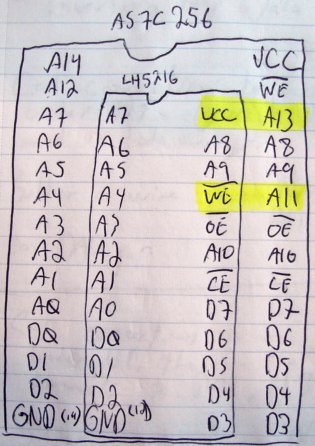 AS7C256
A14 VCC
A12 LH5216 WE
A7 A7 VCC A13
A6 A6 A8 A8
A5 A5 A9 A9
A4 A4 WE A11
A3 A3 OE OE
A2 A2 A10 A10
A1 A1 CE CE
A0 A0 D7 D7
D0 D0 D6 D6
D1 D1 D5 D5
D2 D2 D4 D4
GND (14) GND (12) D3 D3